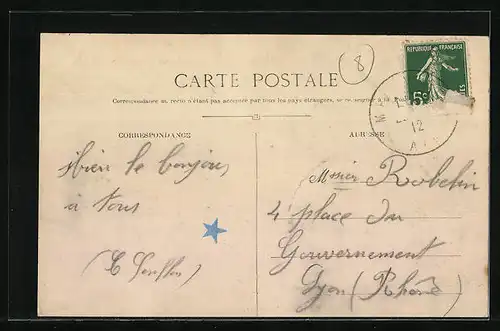 8
REPUBLIQUE FRANÇAISE
5c
CARTE POSTALE
Correspondance au recto n'étant pas acceptée par tous les pays étrangers, se renseigner à la
CORRESPONDANCE
ADRESSE
12
bien le bonjour
à tous
Mssier Robelin
4 place du
Gouvernement
Lyon (Rhône)